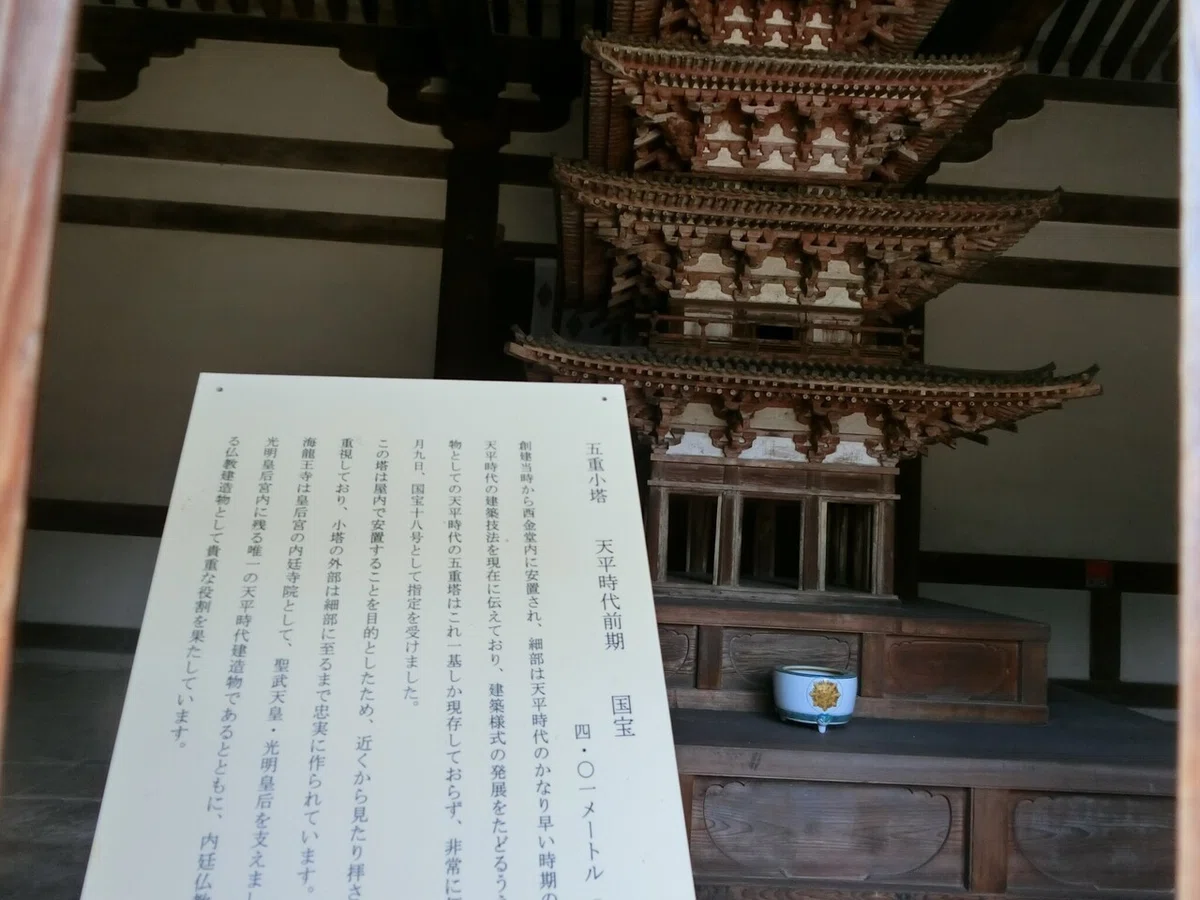 五重小塔 天平時代前期 国宝
四・〇一メートル
創建当時から西金堂内に安置され、細部は天平時代のかなり早い時期の
天平時代の建築技法を現在に伝えており、建築様式の発展をたどるう
物としての天平時代の五重塔はこれ一基しか現存しておらず、非常に
月九日、国宝十八号として指定を受けました。
この塔は屋内で安置することを目的としたため、近くから見たり拝さ
重視しており、小塔の外部は細部に至るまで忠実に作られています。
海龍王寺は皇后宮の内廷寺院として、聖武天皇・光明皇后を支えまし
光明皇后宮内に残る唯一の天平時代建造物であるとともに、内廷仏教
る仏教建造物として貴重な役割を果たしています。